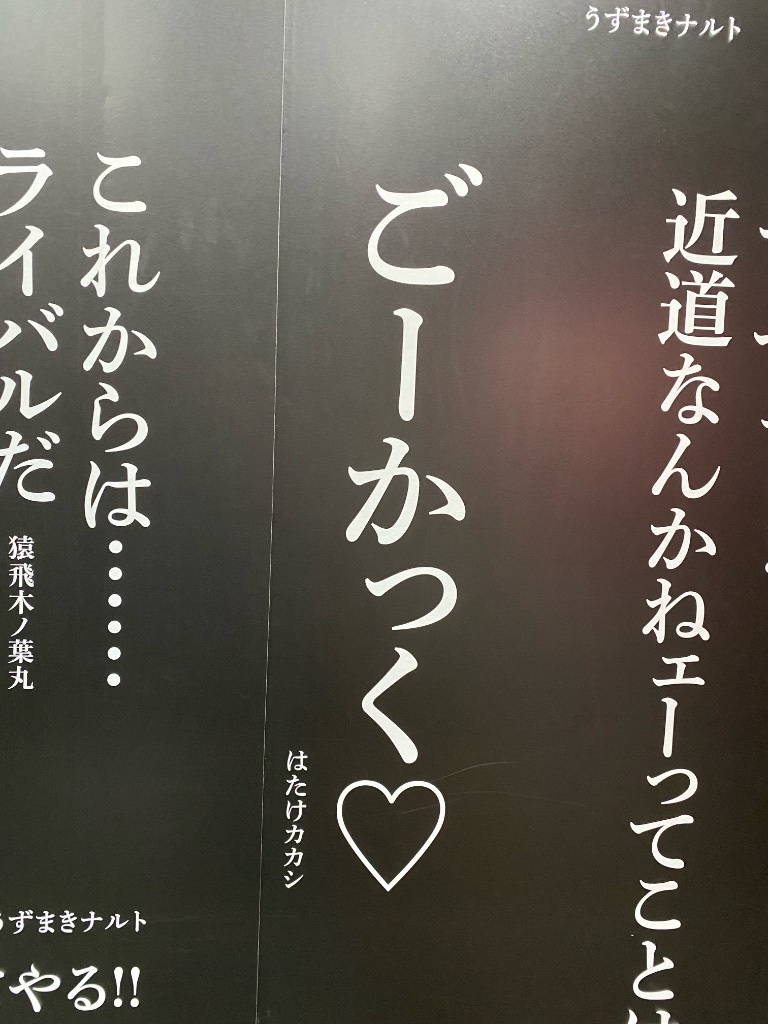 うずまきナルト
近道なんかねェーってこと
ごーかっく♡
はたけカカシ
これからは……
ライバルだ
猿飛木ノ葉丸
うずまきナルト
やる!!